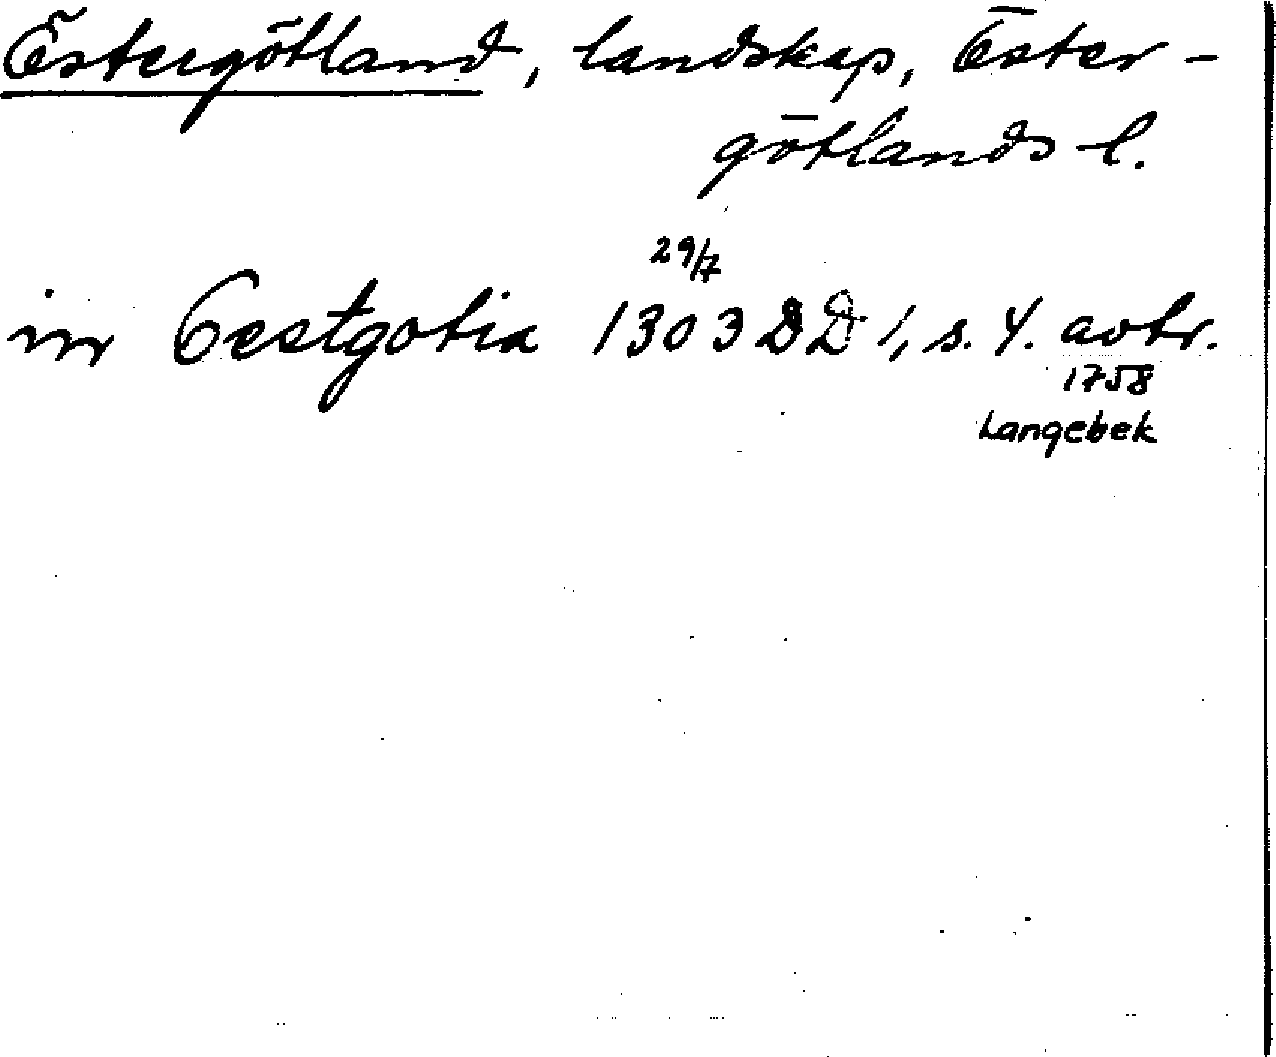 Östergötland, landskap, Öster-
götlands l.
29/7
in Oestgotia 1303 DD 1, s. 4. avtr.
1758
Langebek